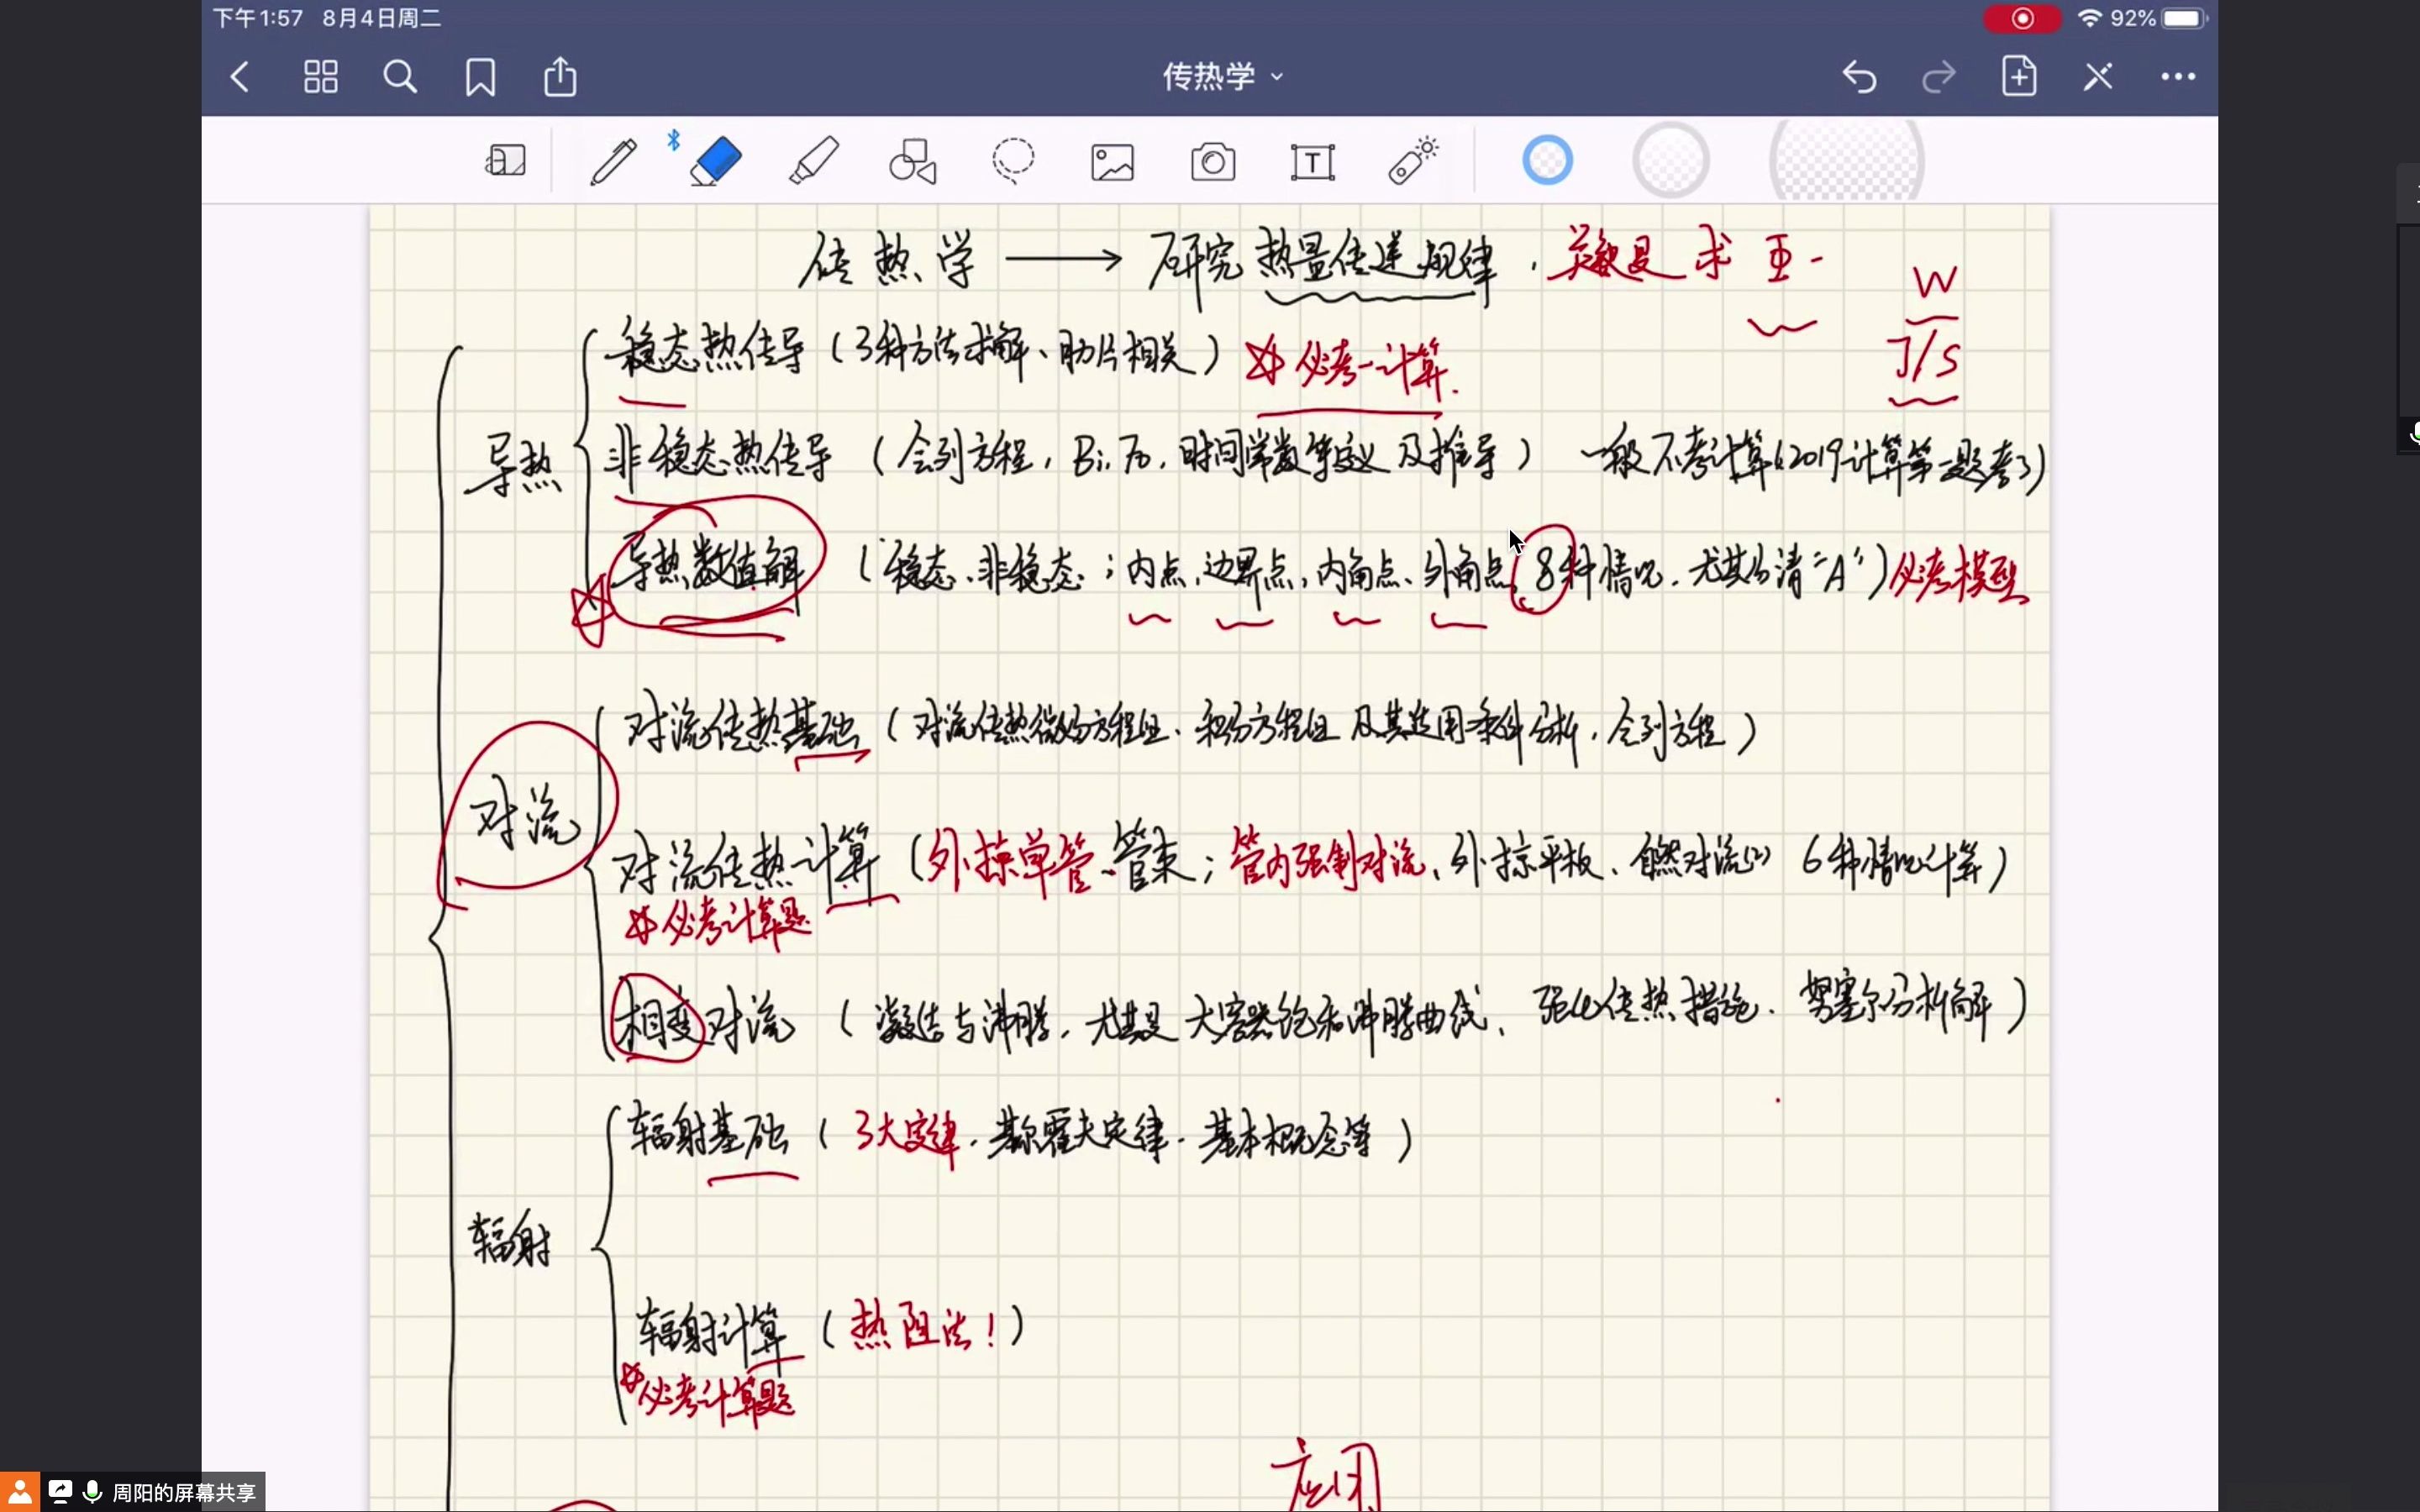 下午1:57 8月4日周二
92%
传热学
传热学 → 研究热量传递规律，关键是求Φ
W
J/S
稳态热传导（3种方法求解、肋片相关）必考一计算.
导热
非稳态热传导（会列方程，Bi, Fo, 时间常数等定义及推导） 一般不考计算(2019计算第一题考了)
导热数值解（稳态、非稳态；内点，边界点，内角点、外角点，8种情况，尤其分清"A"）必考模型
对流传热基础（对流传热微分方程组、积分方程组及其适用条件分析，会列方程）
对流
对流传热计算（外掠单管、管束；管内强制对流、外掠平板、自然对流(2) 6种情况计算）
必考计算题
相变对流（凝结与沸腾，尤其是大容器饱和沸腾曲线、强化传热措施、努塞尔分析解）
辐射基础（3大定律、基尔霍夫定律、基本概念等）
辐射
辐射计算（热阻法！）
必考计算题
应用
周阳的屏幕共享